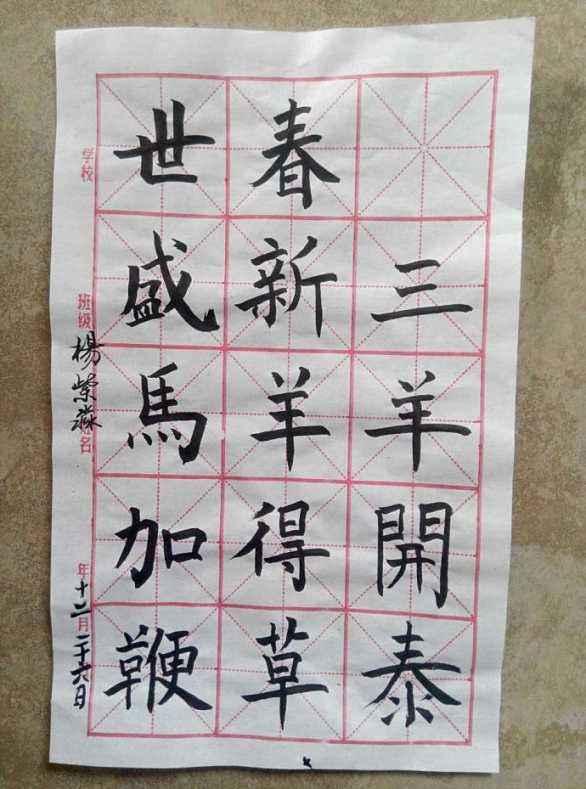 三羊開泰
春新羊得草
世盛馬加鞭
学校
班级
楊紫淼
名
年十二月二十六日